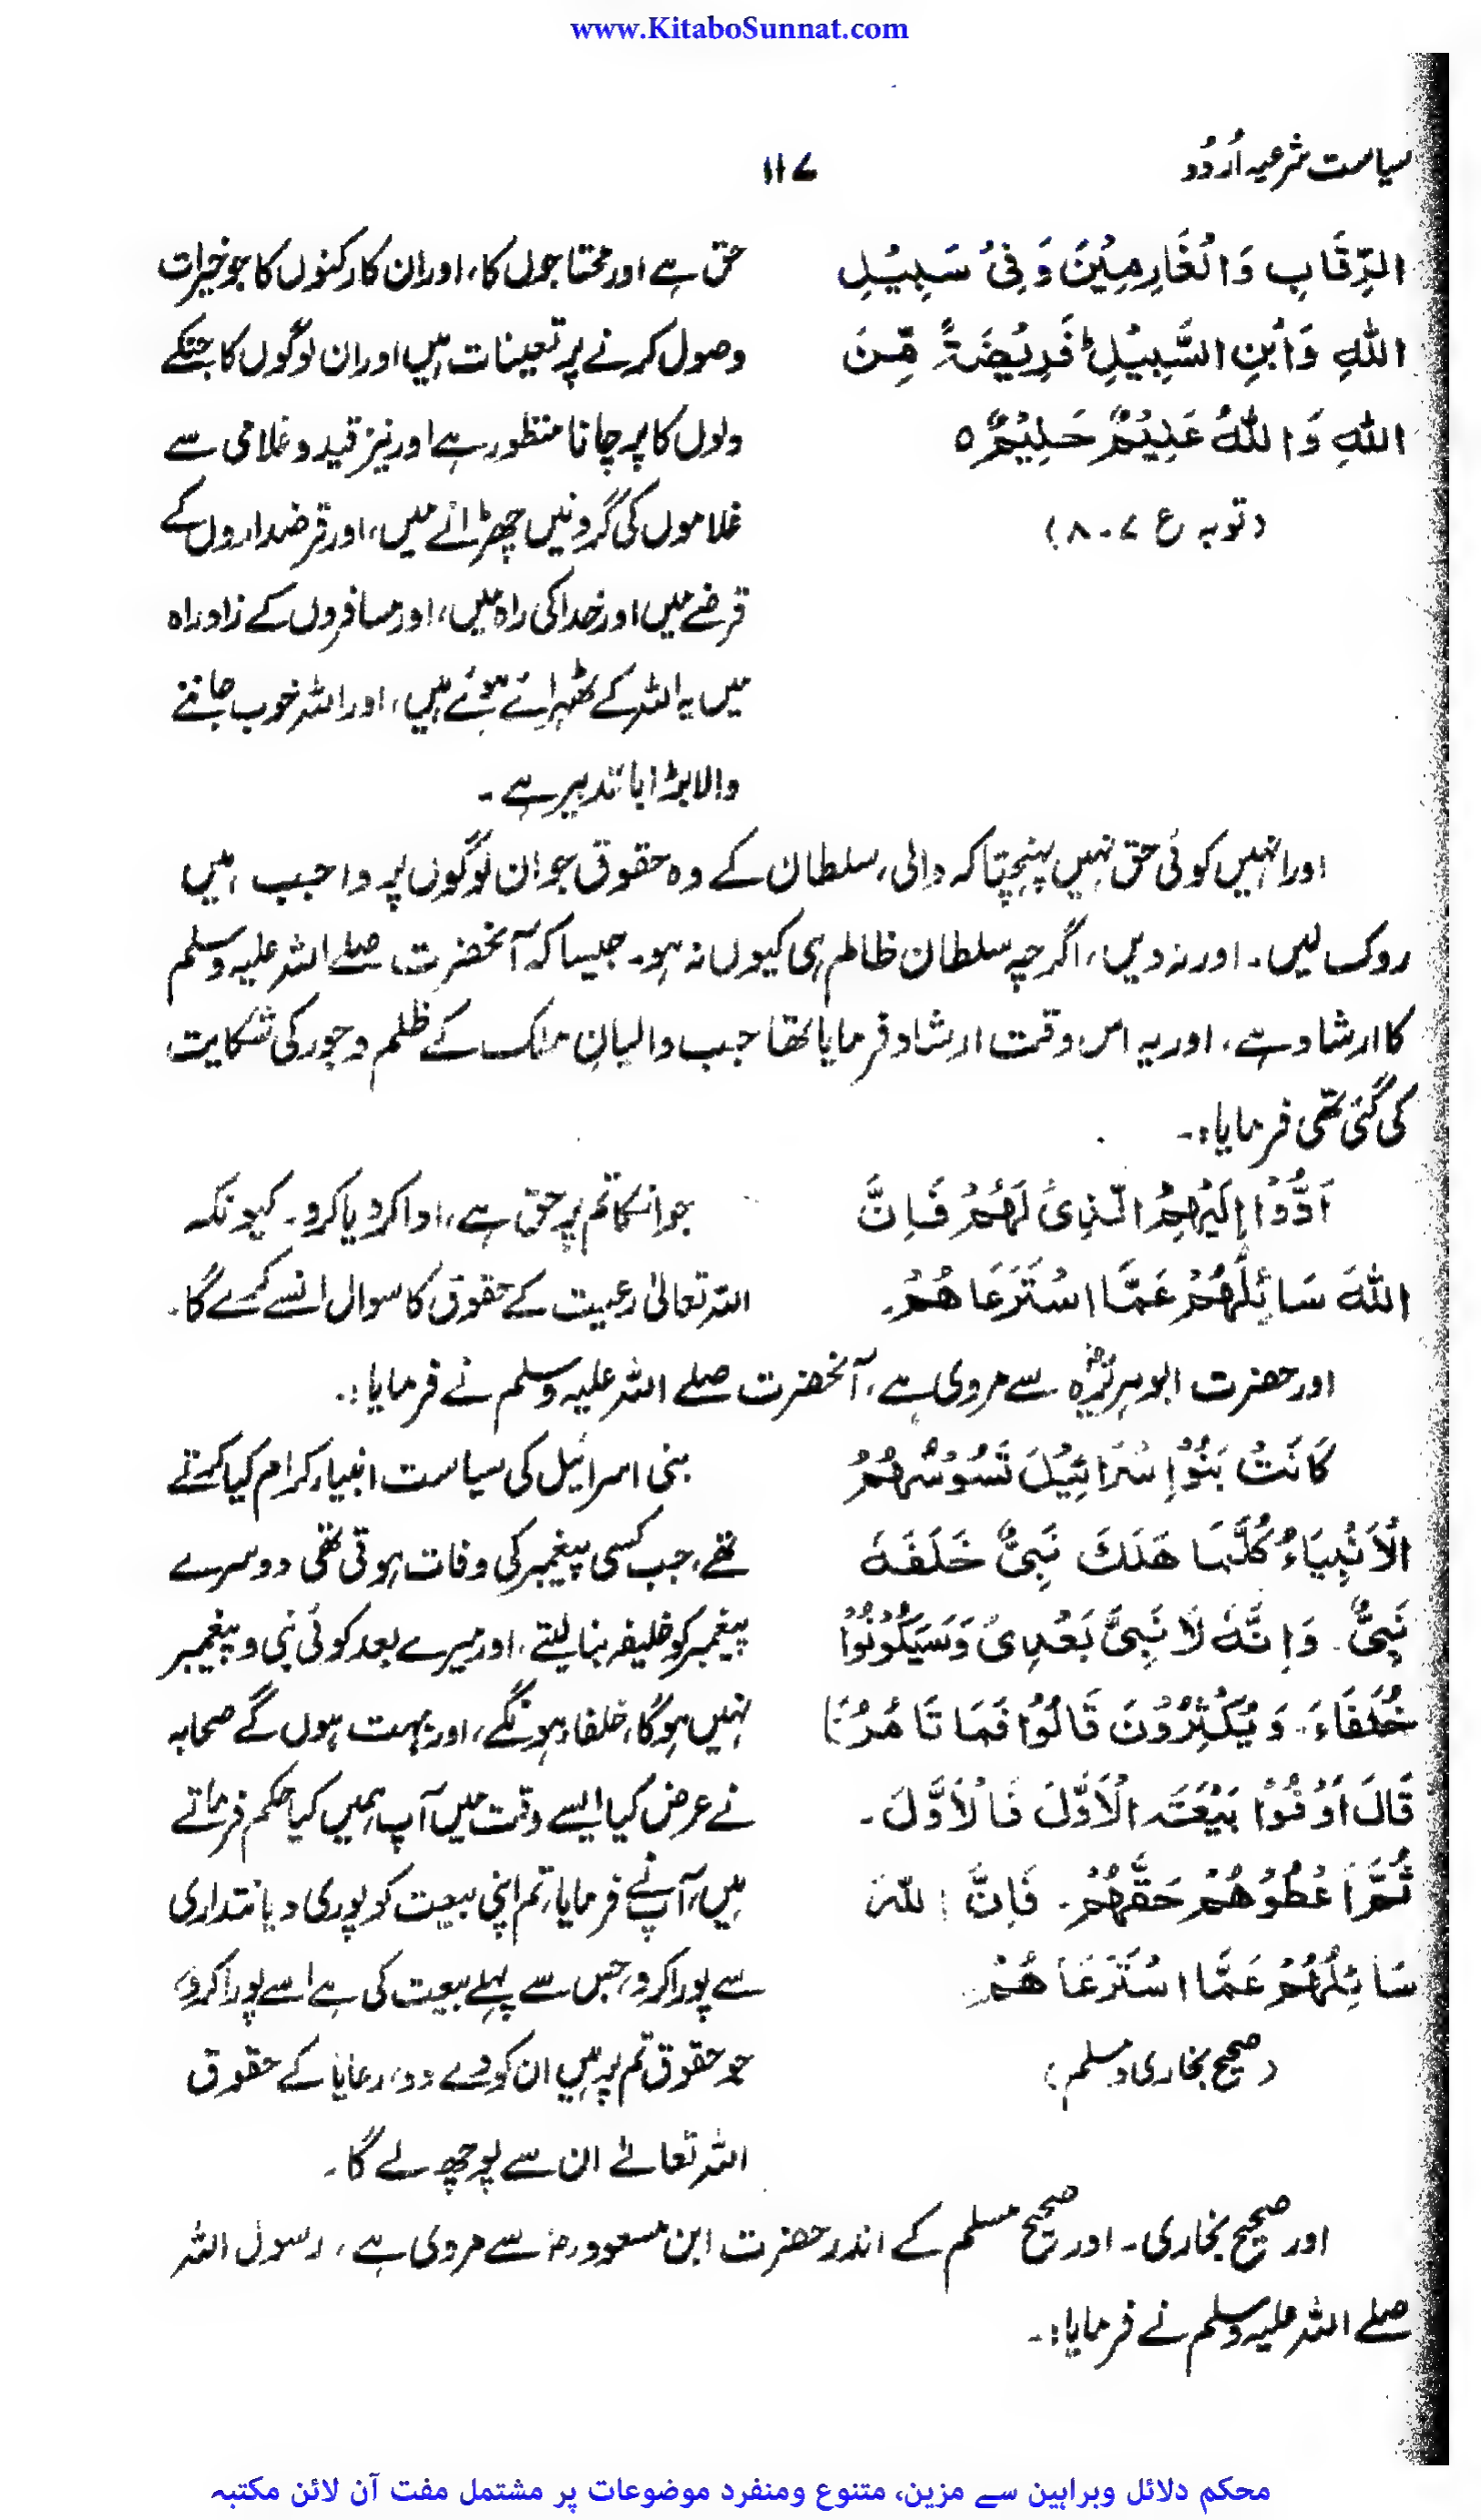 www.KitaboSunnat.com
سیاست شرعیہ اُردُو
۱۱۷
الرِّقَابِ وَالْغَارِمِيْنَ وَفِيْ سَبِيْلِ
اللهِ وَابْنِ السَّبِيْلِ فَرِيْضَةً مِّنَ
اللهِ وَاللهُ عَلِيْمٌ حَلِيْمٌ ٥
(توبہ ع ۷-۸)
حق ہے اور محتاجوں کا، اور ان کارکنوں کا جو خیرات
وصول کرنے پر تعینات ہیں اور ان لوگوں کا جنکے
دلوں کا پرچانا منظور ہے اور نیز قید و غلامی سے
غلاموں کی گردنیں چھڑانے میں، اور قرضداروں کے
قرضے میں اور خدا کی راہ میں، اور مسافروں کے زاد راہ
میں یہ اللہ کے ٹھہرائے ہوئے ہیں، اور اللہ خوب جاننے
والا بڑا با تدبیر ہے۔
اور انہیں کوئی حق نہیں پہنچتا کہ والی، سلطان کے وہ حقوق جو ان لوگوں پر واجب ہیں
روک لیں۔ اور نہ دیں، اگرچہ سلطان ظالم ہی کیوں نہ ہو۔ جیسا کہ آنحضرت صلے اللہ علیہ وسلم
کا ارشاد ہے، اور یہ اس وقت ارشاد فرمایا تھا جب والیانِ ملک کے ظلم وجور کی شکایت
کی گئی تھی فرمایا:۔
اَدُّوْا اِلَيْهِمُ الَّذِیْ لَهُمْ فَاِنَّ
اللهَ سَائِلُهُمْ عَمَّا اسْتَرْعَاهُمْ۔
جو انکا تم پر حق ہے، ادا کر دیا کرو۔ کیونکہ
اللہ تعالیٰ رعیت کے حقوق کا سوال انسے کرے گا۔
اور حضرت ابوہریرہؓ سے مروی ہے، آنحضرت صلے اللہ علیہ وسلم نے فرمایا:۔
كَانَتْ بَنُوْا اِسْرَائِيْلَ تَسُوْسُهُمُ
الْاَنْبِيَاءُ كُلَّمَا هَلَكَ نَبِيٌّ خَلَفَهٗ
نَبِيٌّ۔ وَاِنَّهٗ لَا نَبِيَّ بَعْدِیْ وَسَيَكُوْنُوْا
خُلَفَاءَ۔ وَيُكْثِرُوْنَ قَالُوْا فَمَا تَامُرُنَا
قَالَ اَوْفُوْا بَيْعَةَ الْاَوَّلَ فَالْاَوَّلَ۔
ثُمَّ اَعْطُوْهُمْ حَقَّهُمْ۔ فَاِنَّ اللهَ
سَائِلُهُمْ عَمَّا اسْتَرْعَاهُمْ۔
(صحیح بخاری ومسلم)
بنی اسرائیل کی سیاست انبیاء کرام کیا کرتے
تھے، جب کسی پیغمبر کی وفات ہوتی تھی دوسرے
پیغمبر کو خلیفہ بنا لیتے، اور میرے بعد کوئی نبی و پیغمبر
نہیں ہوگا، خلفاء ہونگے، اور بہت ہوں گے صحابہ
نے عرض کیا ایسے وقت میں آپ ہمیں کیا حکم فرماتے
ہیں، آپ نے فرمایا، تم اپنی بیعت کو پوری دیانتداری
سے پورا کرو، جس سے پہلے بیعت کی ہے اسے پورا کرو،
جو حقوق تم پر ہیں ان کو دے دو، رعایا کے حقوق
اللہ تعالےٰ ان سے پوچھ لے گا۔
اور صحیح بخاری۔ اور صحیح مسلم کے اندر حضرت ابن مسعود رض سے مروی ہے، رسول اللہ
صلے اللہ علیہ وسلم نے فرمایا:۔
محکم دلائل وبراہین سے مزین، متنوع ومنفرد موضوعات پر مشتمل مفت آن لائن مکتبہ